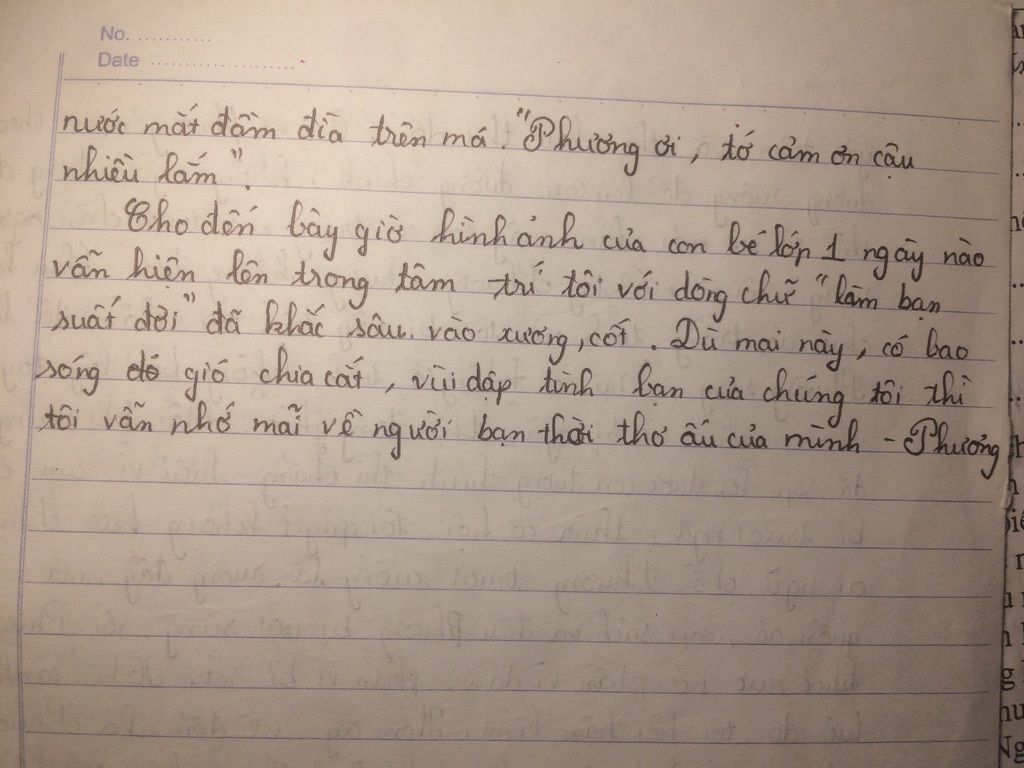 No. ............
Date ........................
nước mắt đầm đìa trên má. "Phương ơi, tớ cảm ơn cậu
nhiều lắm".
Cho đến bây giờ hình ảnh của con bé lớp 1 ngày nào
vẫn hiện lên trong tâm trí tôi với dòng chữ "làm bạn
suất đời" đã khắc sâu vào xương, cốt. Dù mai này, có bao
sóng gió chia cắt, vùi dập tình bạn của chúng tôi thì
tôi vẫn nhớ mãi về người bạn thời thơ ấu của mình - Phương